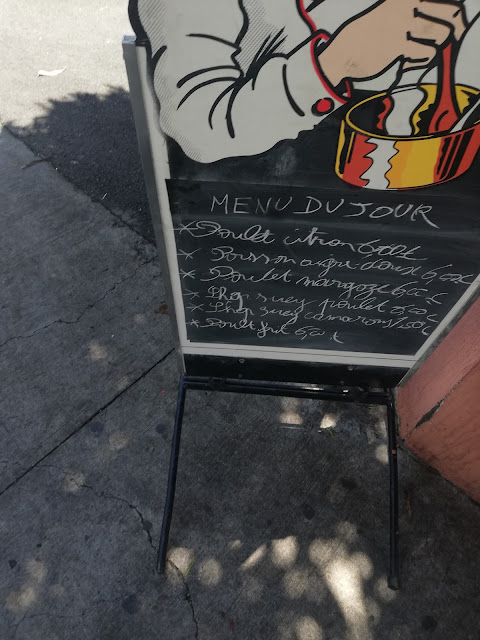 MENU DU JOUR
* Poulet citron 6,00 €
* Poisson aigre doux 6,00 €
* Poulet margoze 6,00 €
* Shop suey poulet €
* Shop suey camarons €
* Poulet 6,00 €